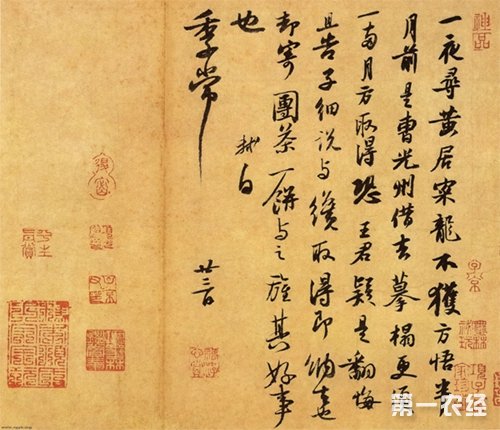 一夜尋黃居寀龍不獲方悟半
月前是曹光州借去摹搨更須
一兩月方取得恐王君疑是翻悔
且告子細說與纔取得即納去也
却寄團茶一餅與之旌其好事
也
軾白
季常
廿三日
神品
子京
第一农经